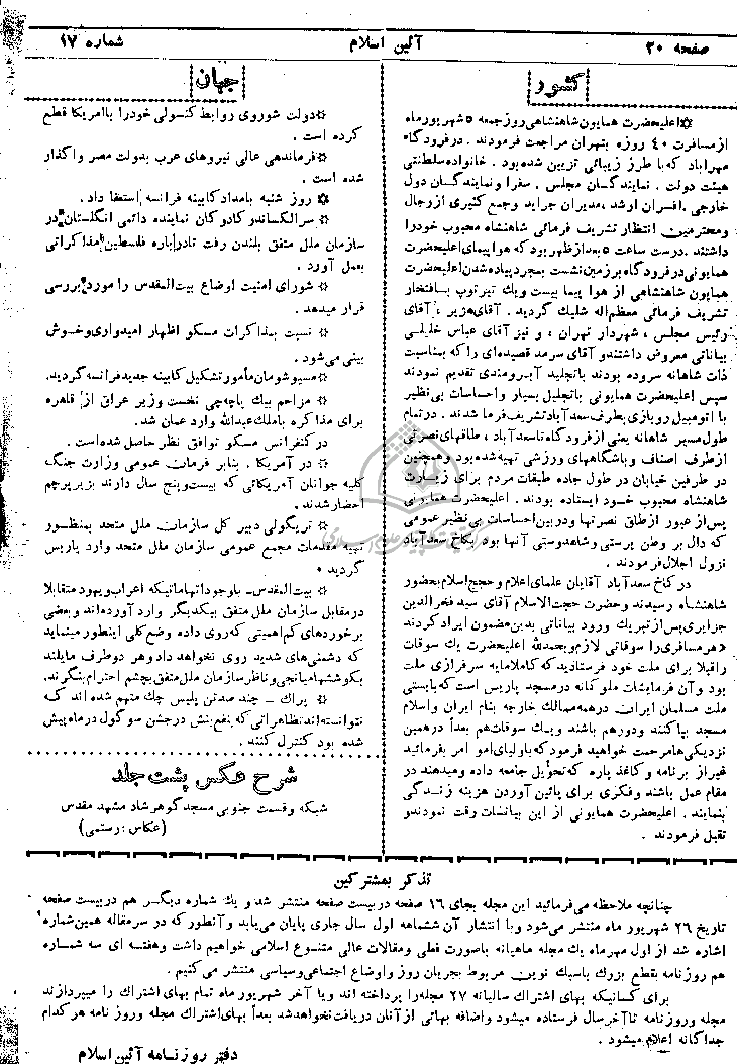 صفحه ۲۰
آئین اسلام
شماره ۱۷
کشور
اعلیحضرت همایون شاهنشاهی روز جمعه ۵ شهریور ماه
از مسافرت ۴۰ روزه بتهران مراجعت فرمودند . در فرودگاه
مهرآباد که با طرز زیبائی تزیین شده بود . خانواده سلطنتی
هیئت دولت . نمایندگان مجلس . سفرا و نمایندگان دول
خارجی . افسران ارشد .مدیران جراید و جمع کثیری از رجال
ومحترمین انتظار تشریف فرمائی شاهنشاه محبوب خود را
داشتند . درست ساعت ۵ بعدازظهر بود که هواپیمای اعلیحضرت
همایونی در فرودگاه برزمین نشست بمجرد پیاده شدن اعلیحضرت
همایون شاهنشاهی از هوا پیما بیست ویك تیر توپ بافتخار
تشریف فرمائی معظم‌اله شلیك گردید . آقای هژیر ، آقای
رئیس مجلس ، شهردار تهران ، و نیز آقای عباس خلیلی
بیاناتی معروض داشتند و آقای سرمد قصیده‌ای را که بمناسبت
ذات شاهانه سروده بودند با تجلید آبرومندی تقدیم نمودند
سپس اعلیحضرت همایونی با تجلیل بسیار و احساسات بی‌نظیر
با اتومبیل روبازی بطرف سعدآباد تشریف فرما شدند . در تمام
طول مسیر شاهانه یعنی از فرودگاه تا سعدآباد ، طاقهای نصرتی
از طرف اصناف و باشگاههای ورزشی تهیه شده بود و همچنین
در طرفین خیابان در طول جاده طبقات مردم برای زیارت
شاهنشاه محبوب خود ایستاده بودند . اعلیحضرت همایونی
پس از عبور از طاق نصرتها و در بین احساسات بی‌نظیر عمومی
که دال بر وطن پرستی و شاهدوستی آنها بود بکاخ سعدآباد
نزول اجلال فرمودند .
در کاخ سعدآباد آقایان علمای اعلام و حجج اسلام بحضور
شاهنشاه رسیدند و حضرت حجت‌الاسلام آقای سید فخرالدین
جزایری پس از تبریك ورود بیاناتی بدین مضمون ایراد کردند
«هر مسافری را سوقاتی لازم و بحمدلله اعلیحضرت یك سوقات
را قبلا برای ملت خود فرستادید که کاملا مایه سرفرازی ملت
بود و آن فرمایشات ملوکانه در مسجد پاریس است که بایستی
ملت مسلمان ایران در همه ممالك خارجه بنام ایران و اسلام
مسجد بپا کنند و دور هم باشند ویك سوقات هم بعداً در همین
نزدیکی ها مرحمت خواهید فرمود که باولیای امور امر بفرمائید
غیر از برنامه و کاغذ پاره که تحویل جامعه داده ومیدهند در
مقام عمل باشند وفکری برای پائین آوردن هزینه زندگی
بنمایند . اعلیحضرت همایونی از این بیانات رقت نمودند و
تقبل فرمودند .
جهان
☼دولت شوروی روابط کنسولی خود را با امریکا قطع
کرده است .
☼فرماندهی عالی نیروهای عرب بدولت مصر واگذار
شده است .
☼ روز شنبه بامداد کابینه فرانسه استعفا داد .
☼ سرالکساندر کادوکان نماینده دائمی انگلستان در
سازمان ملل متفق بلندن رفت تا درباره فلسطین مذاکراتی
بعمل آورد .
☼ شورای امنیت اوضاع بیت‌المقدس را مورد بررسی
قرار میدهد .
☼ نسبت بمذاکرات مسکو اظهار امیدواری و خوش
بینی می‌شود .
☼مسیو شومان مأمور تشکیل کابینه جدید فرانسه گردید.
☼ مزاحم بیك پاچه‌چی نخست وزیر عراق از قاهره
برای مذاکره با ملك عبدالله وارد عمان شد.
در کنفرانس مسکو توافق نظر حاصل شده است .
☼ در آمریکا . بنابر فرمان عمومی وزارت جنگ
کلیه جوانان آمریکائی که بیست و پنج سال دارند بزیر پرچم
احضار شدند .
☼ تریگولی دبیر کل سازمان ملل متحد بمنظور
تهیه مقدمات مجمع عمومی سازمان ملل متحد وارد پاریس
گردید ☼
☼ بیت‌المقدس- با وجود اتهاماتیکه اعراب و یهود متقابلا
در مقابل سازمان ملل متفق بیکدیگر وارد آورده اند و بعضی
برخوردهای کم اهمیتی که روی داده وضع کلی اینطور مینماید
که دشمنی‌های شدید روی نخواهد داد و هر دو طرف مایلند
بکوششهای میانجی و ناظر سازمان ملل متفق بچشم احترام بنگرند.
☼ پراك - چند صد تن پلیس چك متهم شده اند که
نتوانسته اند تظاهراتی که بنفع بنش در جشن سوگول در ماه پیش
شده بود کنترل کنند .
شرح عکس پشت جلد
شبکه وقسمت جنوبی مسجد گوهرشاد مشهد مقدس
(عکاس : رستمی)
تذکر بمشترکین
چنانچه ملاحظه می‌فرمائید این مجله بجای ۱۶ صفحه در بیست صفحه منتشر شد و یك شماره دیگر هم در بیست صفحه
تاریخ ۲۶ شهریور ماه منتشر می‌شود و با انتشار آن ششماهه اول سال جاری پایان می‌یابد و آنطور که در سرمقاله همین شماره
اشاره شد از اول مهرماه یك مجله ماهیانه باصورت فعلی و مقالات عالی متنوع اسلامی خواهیم داشت و هفته ای سه شماره
هم روزنامه بقطع بزرك باسبك نوین مربوط بجریان روز و اوضاع اجتماعی و سیاسی منتشر می‌کنیم .
برای کسانیکه بهای اشتراك سالیانه ۲۷ مجله را پرداخته اند و یا آخر شهریور ماه تمام بهای اشتراك را میپردازند
مجله و روزنامه تا آخر سال فرستاده میشود و اضافه بهائی از آنان دریافت نخواهد شد بعداً بهای اشتراك مجله و روز نامه هر کدام
جداگانه اعلام میشود .
دفتر روزنامه آئین اسلام